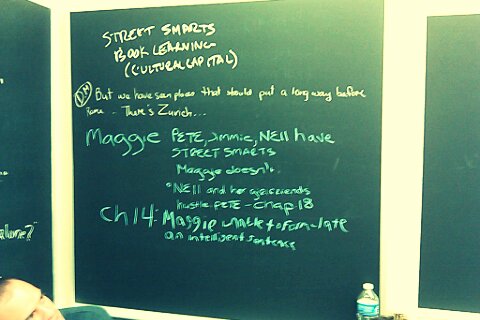 STREET SMARTS
BOOK LEARNING
(CULTURAL CAPITAL)
But we have seen places that should put a long way before
Rome - There's Zurich...
Maggie PETE, Jimmie, NEll have
STREET SMARTS
Maggie doesn't.
*NEll and her age friends
hustle PETE - Chap 18
Ch 14: Maggie unable to form-late
an intelligent sentence
alone?"